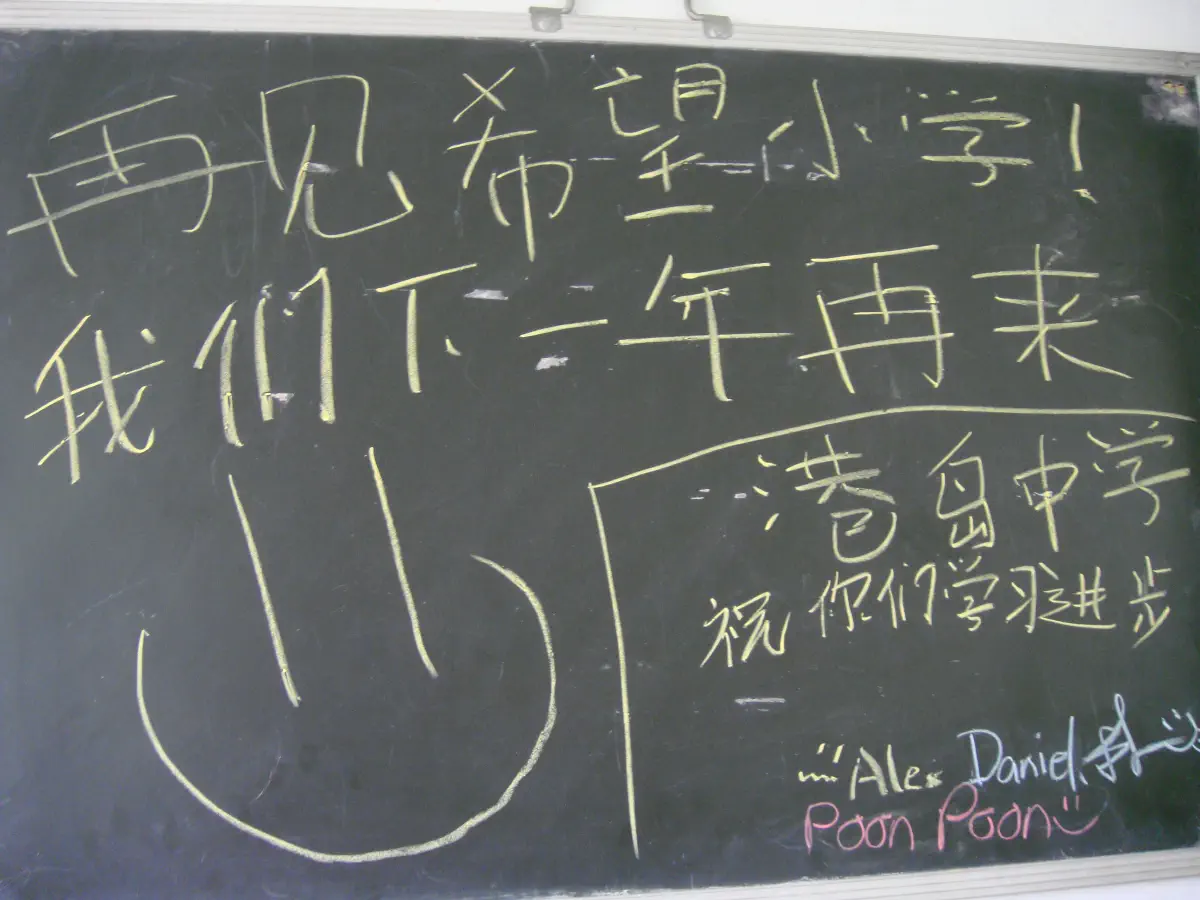 再见希望小学!
我们下一年再来
港岛中学
祝你们学习进步
Alex Daniel
Poon Poon